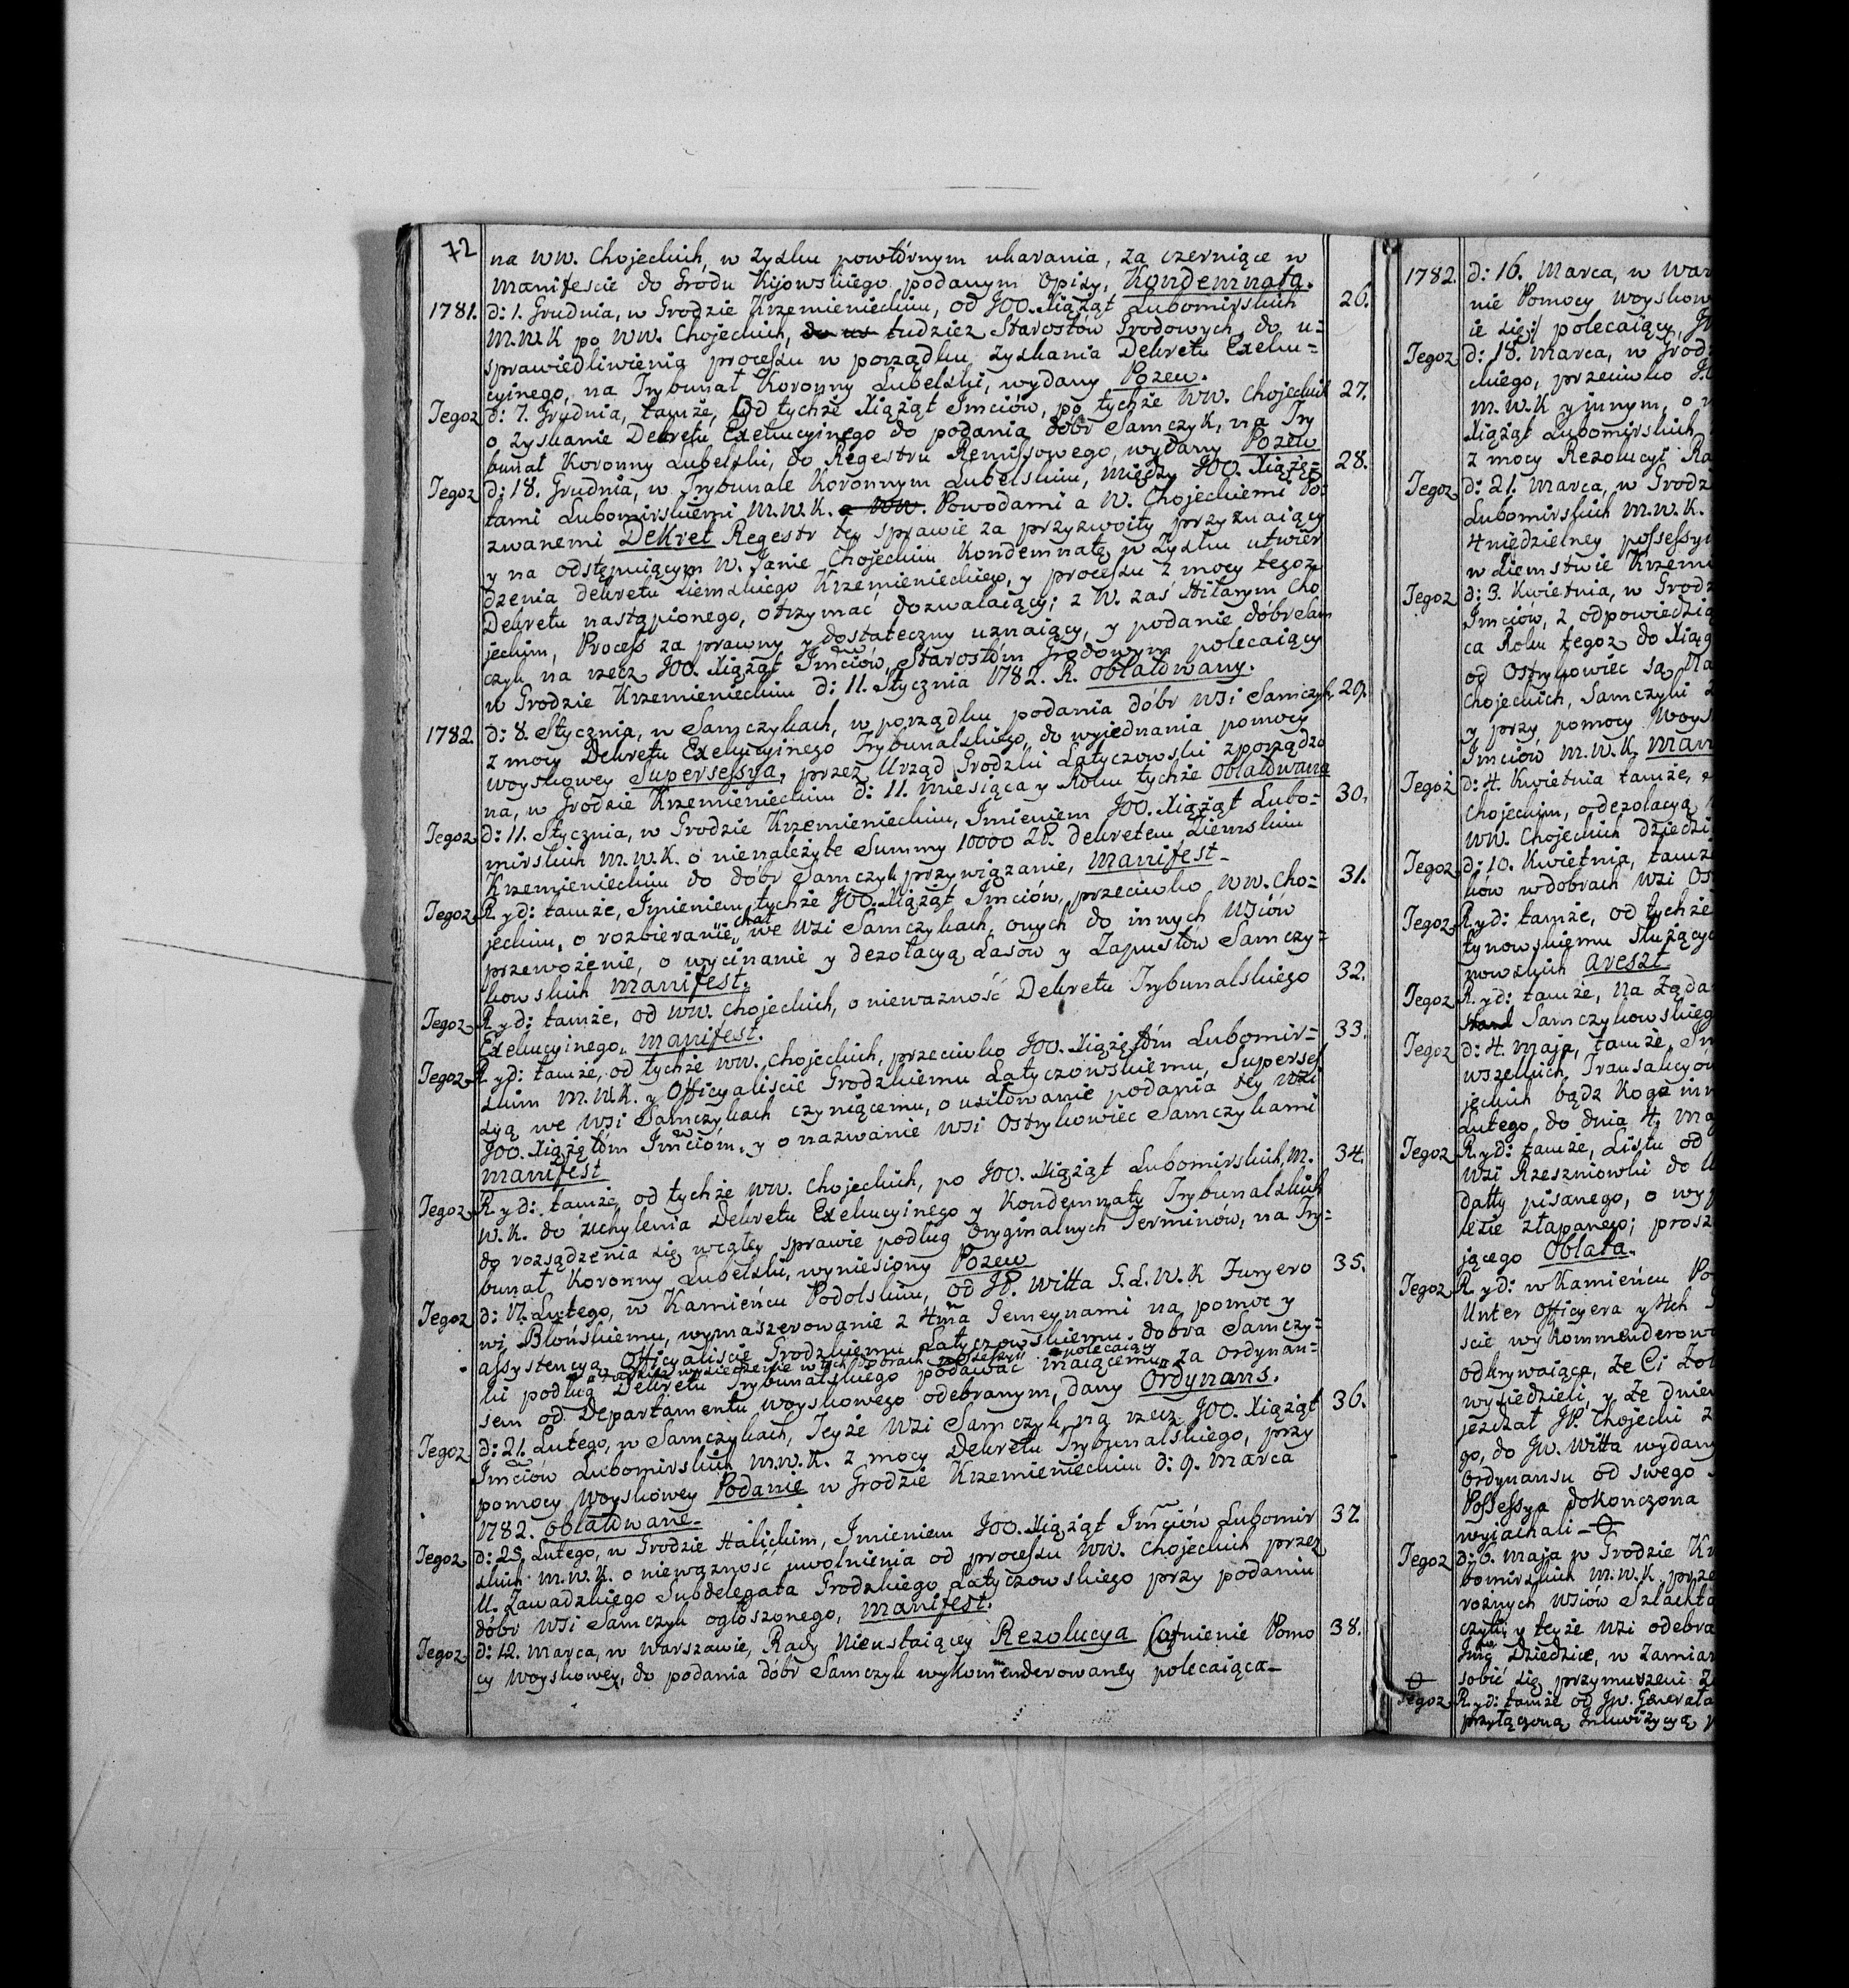 72
na WW. Chojeckich, w Zysku powtórnym ukarania, za czerniące w
Manifescie do Grodu Kijowskiego podanym opisy, Kondemnata.
1781. d: 1. Grudnia, w Grodzie Krzemienieckim, od JOO. Xiążąt Lubomirskich 26.
M.W.K po WW. Chojeckich, tudziez Starostów Grodowych, do u=
sprawiedliwienia processu w porządku zyskania Dekretu Exeku=
cyinego, na Trybunał Koronny Lubelski, wydany Pozew.
Tegoz d: 7. Grudnia, tamże, Od tychże Xiążąt Imciów, po tychże WW. Chojeckich 27.
o zyskanie Dekretu Exekucyinego do podania dóbr Samczyk, na Try
bunał Koronny Lubelski, do Regestru Remissowego, wydany Pozew
Tegoz d: 18. Grudnia, w Trybunale Koronnym Lubelskim, między JOO. Xiążę= 28.
tami Lubomirskiemi M.W.K. a WW. Powodami a W. Chojeckiemi Po
zwanemi Dekret Regestr tey sprawie za przyzwoity przyznaiący
y na odstępuiącym W. Janie Chojeckim Kondemnatę, w Zysku utwier
dzenia dekretu Ziemskiego Krzemienieckiego, y processu z mocy tegoz
Dekretu nastąpionego, otrzymać dozwalaiący; z W. zaś Hilarym Cho
jeckim, Process za prawny y dostateczny uznaiący, y podanie dóbr Sam
czyk na rzecz JOO. Xiążąt Imciów, Starostom Grodowym polecaiący
w Grodzie Krzemienieckim d: 11. Stycznia 1782. R. oblatowany.
1782. d: 8. Stycznia, w Samczykach, w porządku podania dóbr Wsi Samczyk 29.
z mocy Dekretu Exekucyinego Trybunalskiego, do wyjednania pomocy
woyskowey Supersessya, przez Urząd Grodzki Latyczowski zporządzo
na, w Grodzie Krzemienieckim d: 11. miesiąca y Roku tychże oblatowana
Tegoz d: 11. Stycznia, w Grodzie Krzemienieckim, Imieniem JOO. Xiążąt Lubo= 30.
mirskich M.W.K. o nienależyte Summy 10000 Zł. dekretem Ziemskim
Krzemienieckim do dóbr Samczyk przywiązanie, Manifest
Tegoz R. y d: tamże, Imieniem tychże JOO. Xiążąt Imciów, przeciwko WW. Cho= 31.
jeckim, o rozbieranie chat we Wsi Samczykach, onych do innych Wsiów
przewożenie, o wycinanie y dezolacyą Lasów y Zapustów Samczy=
kowskich Manifest.
Tegoz R. y d: tamże, od WW. Chojeckich, o nieważność Dekretu Trybunalskiego 32.
Exekucyinego, Manifest.
Tegoz R. y d: tamże, od tychże WW. Chojeckich, przeciwko JOO. Xiążętom Lubomir= 33.
skim M.W.K. y Officyaliście Grodzkiemu Latyczowskiemu, Superses
syą we Wsi Samczykach czyniącemu, o usiłowanie podania tey Wsi
JOO. Xiążętom Imciom, y o nazwanie Wsi Ostrykowiec Samczykami
Manifest
Tegoz R. y d: tamże od tychże WW. Chojeckich, po JOO. Xiążąt Lubomirskich, M. 34.
W.K. do uchylenia Dekretu Exekucyinego y Kondemnaty Trybunalskich
do rozsądzenia się wcałey sprawie podług oryginalnych Terminów, na Try=
bunał Koronny Lubelski, wyniesiony Pozew
Tegoz d: 17. Lutego, w Kamieńcu Podolskim, od JP. Witta G.L.W.K Furyero 35.
wi Błońskiemu, wymaszerowanie z 4ma Gemeynami na pomoc y
assystencyą, Officyaliście Grodzkiemu Latyczowskiemu, dobra Samczy=
wysiedzenie w tych dobrach possessyi polecaiący
ki podług Dekretu Trybunalskiego podawać maiącemu, za Ordynan=
sem od Departamentu woyskowego odebranym, dany Ordynans.
Tegoz d: 21. Lutego, w Samczykach, Teyże Wsi Samczyk na rzecz JOO. Xiążąt 36.
Imciów Lubomirskich M.W.K. z mocy Dekretu Trybunalskiego, przy
pomocy Woyskowey Podanie w Grodzie Krzemienieckim d: 9. Marca
1782. oblatowane.
Tegoz d: 25. Lutego, w Grodzie Halickim, Imieniem JOO. Xiążąt Imciów Lubomir 37.
skich M.W.K. o nieważność uwolnienia od processu WW. Chojeckich przez
U. Zawadzkiego Subdelegata Grodzkiego Latyczowskiego przy podaniu
dóbr Wsi Samczyk ogłoszonego, Manifest.
Tegoz d: 12. Marca, w Warszawie, Rady Nieustaiącey Rezolucya Cofnienie Pomo 38.
cy Woyskowey, do podania dóbr Samczyk wykommenderowaney polecaiąca
1782. d: 16. Marca, w War
nie Pomocy Woyskow
ie się; polecaiący,
Tegoz d: 18. Marca, w Grod
ckiego, przeciwko
M.W.K y innym, o
Xiążąt Lubomirskich
z mocy Rezolucyi Ra
Tegoz d: 21. Marca, w Grodz
Lubomirskich M.W.K.
4niedzielney possessyi
w Ziemstwie Krzemi
Tegoz d: 3. Kwietnia, w Grodz
Imciów, z odpowiedzią
ca Roku tegoz do Xiąg
od Ostrykowiec są
Chojeckich, Samczyki
y przy pomocy Woys
Imciów M.W.K, Man
Tegoż d: 4. Kwietnia tamże,
Chojeckim, o dezolacyą
WW. Chojeckich dziedzi
Tegoz d: 10. Kwietnia, tamż
ków w dobrach Wsi Os
Tegoz R. y d: tamże, od tychże
tynowskiemu Służący
nowskich Areszt
Tegoz R. y d: tamże, na żąda
Samczykowskieg
Tegoz d: 4. Maja, tamże,
wszelkich Transakcyów
jeckich bądz Kogo inn
Lutego, do dnia 4. Ma
Tegoz R. y d: tamże, Listu od
Wsi Rzeszniowki do
datty pisanego, o wy
lezie złapanego; prosz
jącego Oblata.
Tegoz R. y d: w Kamieńcu Po
Unter Officyera y 4ch
scie wykommenderow
odkrywaiąca, że Ci Żoł
wysiedzieli, y że dnie
jezdżał JP. Chojecki z
go, do JW. Witta wydany
Ordynansu od swego
Possessya dokonczona
wyjachali
Tegoz d: 6. Maja w Grodzie Kr
bomirskich M.W.K. prze
roznych Wsiów Szlachta
czyk, y teyże Wsi odebra
Dziedzice, w Zamiar
sobić się przymuszeni
Tegoz R. y d: tamże od JW. Generała
przyłączoną Inkwizycyą